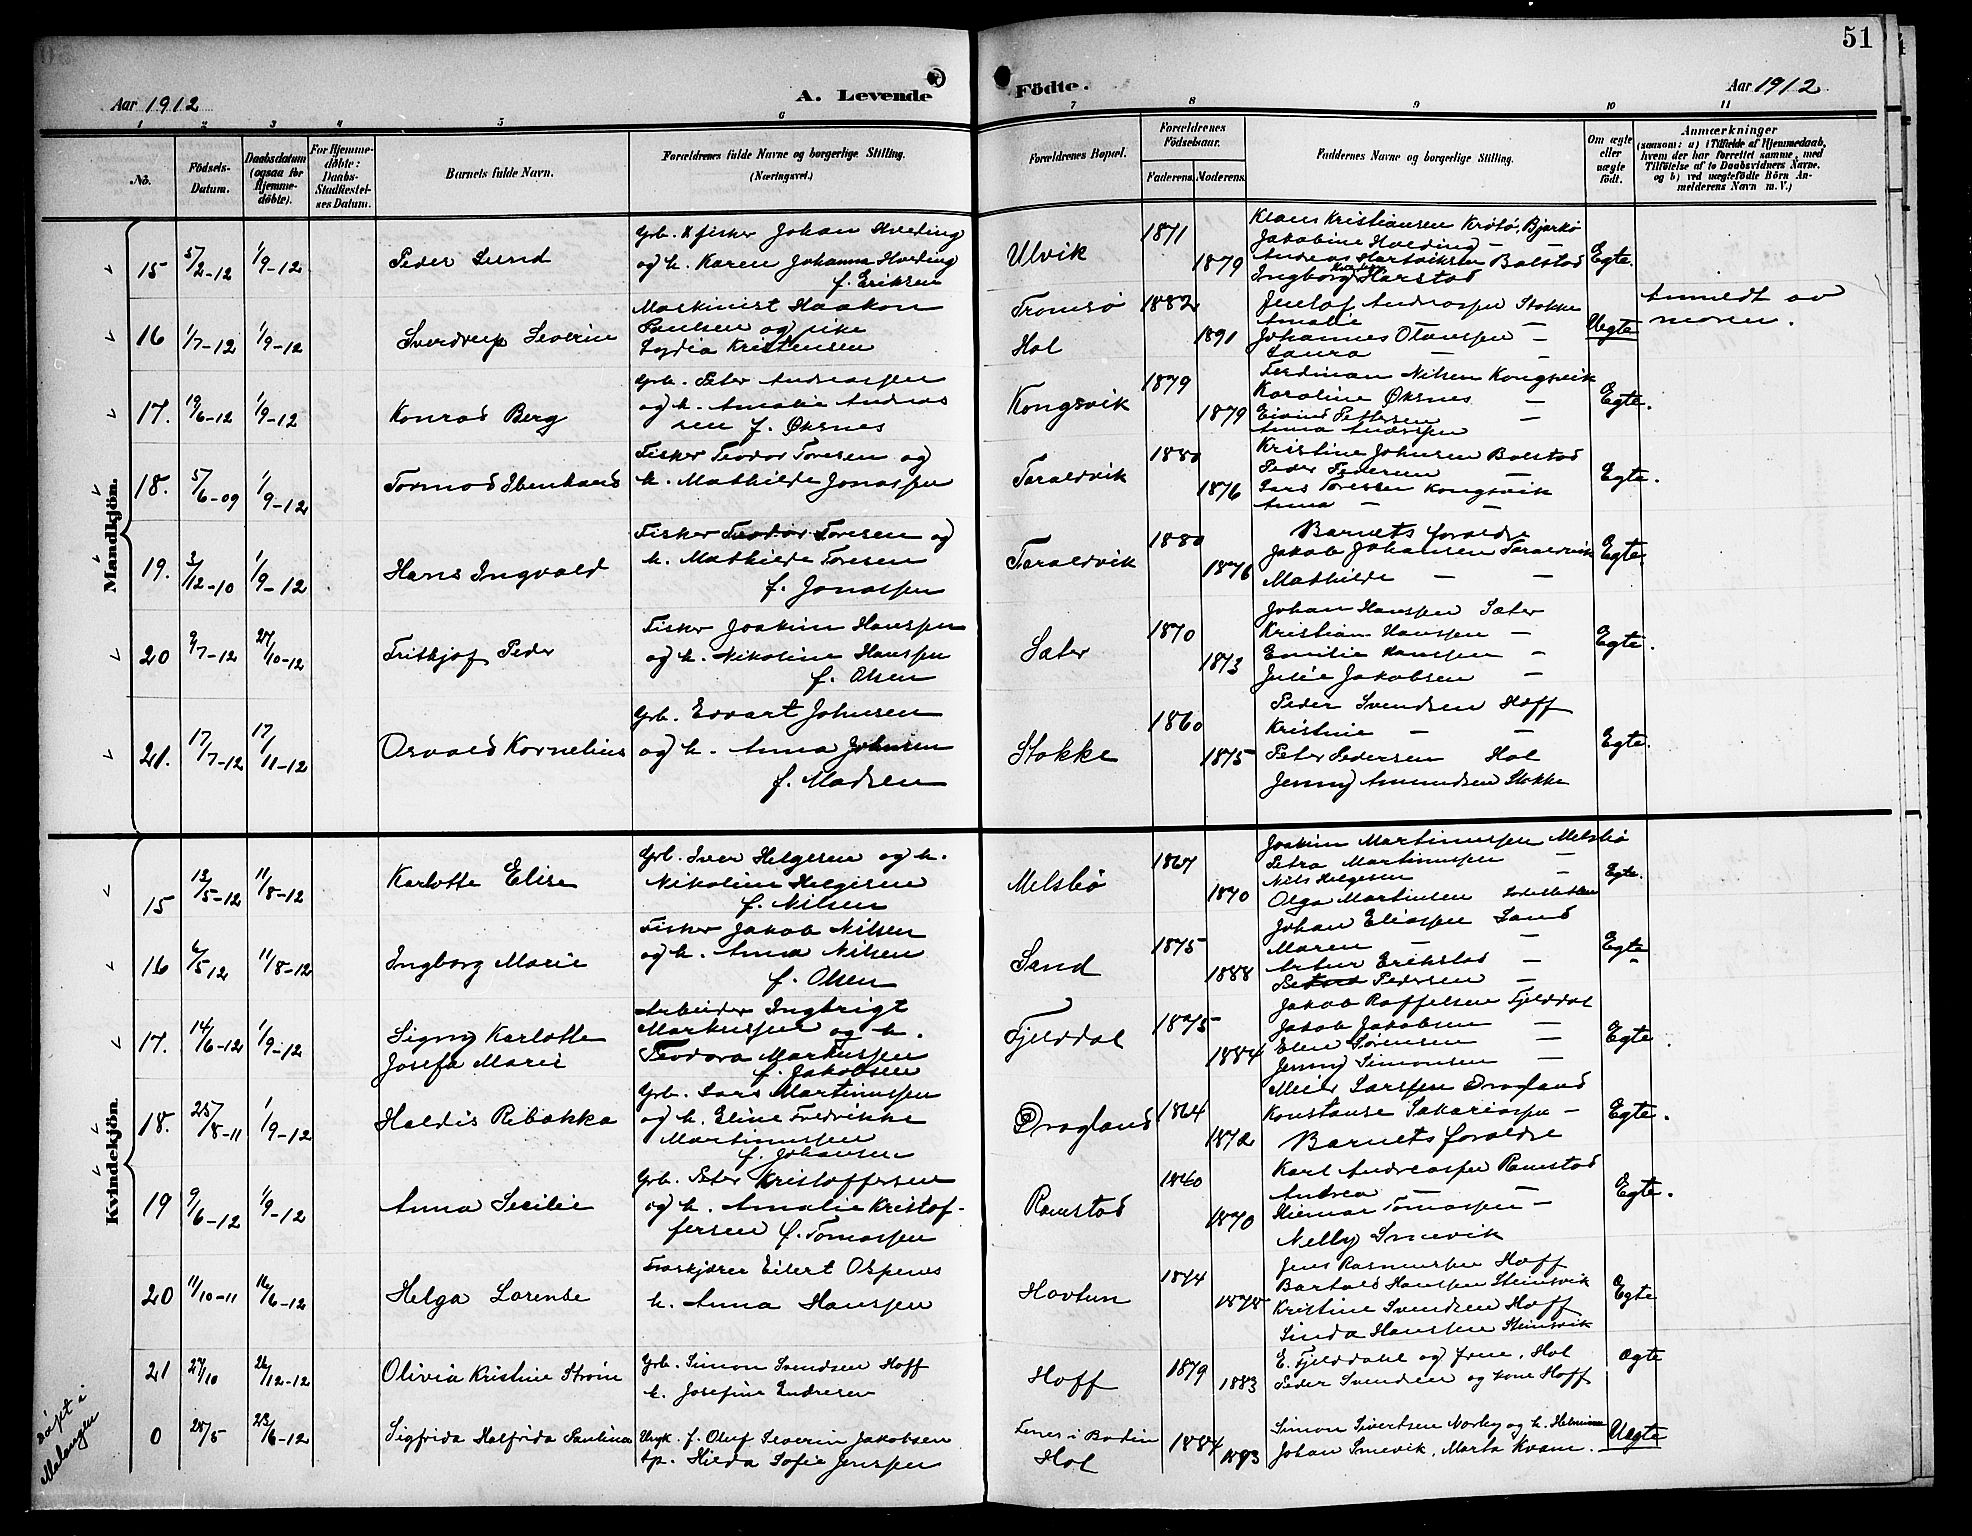 51
Aar 1912
A. Levende
Födte.
Aar 1912
1 2 3 4 5 6 7 8 9 10 11
No.
Födsels-Datum.
Daabsdatum (ogsaa for Hjemme-döbte).
For Hjemme-döbte: Daabs-Stadfæstel-ses Datum.
Barnets fulde Navn.
Forældrenes fulde Navne og borgerlige Stilling. (Næringsvei.)
Forældrenes Bopæl.
Forældrenes Födselsaar.
Faderens. Moderens.
Faddernes Navne og borgerlig Stilling.
Om ægte eller uægte födt.
Anmærkninger
(saasom: a) i Tilfælde af Hjemmedaab, hvem der har forrettet samme, med Tilföielse af to Daabsvidners Navne. og b) ved uægtefödte Börn Anmelderens Navn m. V.)
Mandkjön.
15 5/2-12 1/9-12 Peder Lund
Grb. & fisker Johan Hveding
og h. Karen Johanna Hveding
f. Eriksen
Ulvik 1871 1879
Klaus Kristiansen Krøtø, Bjarkø
Jakobine Hveding — —
Andreas Hartviksen Bolstad
Ingborg Harstad
Egte.
16 1/7-12 1/9-12 Sverdrup Severin
Maskinist Haakon
Paulsen og pike
Lydia Kristensen
Tromsø
Hol 1882 1891
Jentof Andreassen Stokke
Amalie — —
Johannes Olaussen —
Laura — —
Uegte
Anmeldt av
moren.
17. 19/6-12 1/9-12 Konrad Berg
Grb. Peter Andreassen
og h. Amalie Andreas
sen f. Øksnes
Kongsvik 1879 1879
Ferdinan Nilsen Kongsvik
Karoline Øksnes —
Eivind Pettersen —
Anna Anderssen
Egte.
18. 5/6-09 1/9-12 Tormod Ibenhard
Fisker Teodor Toresen og
h. Mathilde Jonassen
Taraldvik 1880 1876
Kristine Johnsen Bolstad
Peder Pedersen —
Lars Toressen Kongsvik
Anna — —
Egte.
19. 3/12-10 1/9-12 Hans Ingvald
Fisker Teodor Toresen og
h. Mathilde Toresen
f. Jonassen
Taraldvik 1880 1876
Barnets foraldre
Jakob Johansen Taraldvik
Mathilde — —
Egte.
20 9/7-12 27/10-12 Fritkjof Peder
Fisker Joakim Hanssen
og h. Nikoline Hanssen
f. Olsen
Sæter 1870 1873
Johan Hanssen Sæter
Kristian Hanssen —
Emilie Hanssen —
Julie Jakobsen —
Egte.
21. 17/7-12 17/11-12 Osvald Kornelius
Grb. Edvart Johnsen
og h. Anna Johnsen
f. Madsen
Stokke 1860 1875
Peder Svendsen Hoff
Kristine — —
Peter Pedersen Hol
Jenny Amundsen Stokke
Egte.
Kvindekjön.
15 13/5-12 11/8-12 Karlotte Elise
Grb. Iver Helgesen og h.
Nikoline Helgesen
f. Nilsen
Melsbø 1867 1870
Joakim Martinussen Melsbø
Petra Martinussen —
Nils Helgesen —
Olga Martinsen
Egte.
16 6/5 12 11/8-12 Ingborg Marie
Fisker Jakob Nilsen
og h. Anna Nilsen
f. Olsen
Sand 1875 1888
Johan Eliassen Sand
Maren — —
Artur Erikstad —
Pedersen —
Egte
17. 14/6-12 1/9-12 Signy Karlotte
Josefa Marie
Arbeider Ingbrigt
Markussen og h.
Teodora Markussen
f. Jakobsen
Fjelddal 1875 1884
Jakob Roffelsen Fjelddal
Jakob Jakobsen —
Elen Sørensen —
Jenny Simonsen —
Egte.
18. 25/8-11 1/9-12 Haldis Ribekka
Grb. Lars Martinussen
og h. Eline Fredrikke
Martinussen
f. Johansen
Dragland 1864 1872
Meier Larssen Dragland
Konstanse Sakariassen —
Barnets foraldre
Egte.
19 9/6-12 1/9-12 Anna Secilie
Grb. Peter Kristoffersen
og h. Amalie Kristof-
fersen f. Tomassen
Ramstad 1860 1870
Karl Andreassen Ramstad
Andrea — —
Hilmar Tomassen —
Nelly Smevik
Egte.
20 11/10-11 16/6-12 Helga Lorense
Fraskjærer Eilert Ospenes
h. Anna Hanssen
Hovtun 1874 1878
Jens Rasmussen Hoff
Bartald Hanssen Steinsvik
Kristine Svendsen Hoff
Linda Hanssen Steinsvik
Egte
21 27/10 26/12-12 Olivia Kristine Strøm
Grb. Simon Svendsen Hoff
h. Josefine Endresen
Hoff 1879 1883
E. Fjelddahl og frue, Hol
Peder Svendsen og kone Hoff
Ægte
døpt i
Malangen
0 28/5 23/6-12 Sigfrida Halfrida Paulina
Ungk. f. Oluf Severin Jakobsen
Sp. Hilda Sofie Jenssen
Tenes i Badin
Hol 1884 1893
Simon Sivertsen Norby og h.
Johan Smevik, Marta Kvam.
Uegte